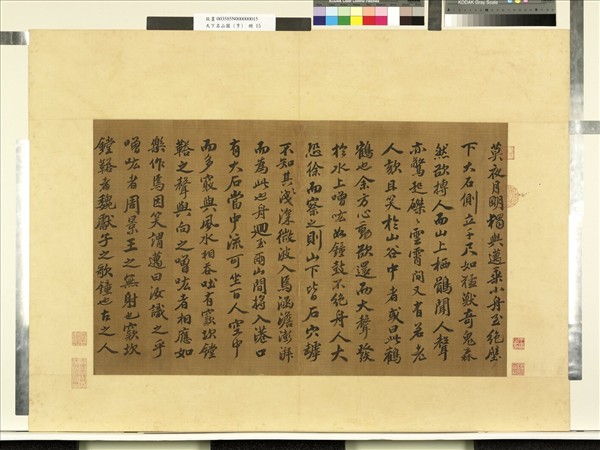 KODAK Gray Scale
003583N000000015
莫夜月明獨與邁乘小舟至絕壁
下大石側立千尺如猛獸奇鬼森
然欲搏人而山上栖鶻聞人聲
亦驚起磔〻雲霄間又有若老
人欬且笑於山谷中者或曰此鸛
鶴也余方心動欲還而大聲發
於水上噌吰如鐘鼓不絕舟人大
恐徐而察之則山下皆石穴罅
不知其淺深微波入焉涵澹澎湃
而為此也舟迴至兩山間將入港口
有大石當中流可坐百人空中
而多竅與風水相吞吐有窾坎鏜
鞳之聲與向之噌吰者相應如
樂作焉因笑謂邁曰汝識之乎
噌吰者周景王之無射也窾坎
鏜鞳者魏獻子之歌鍾也古之人